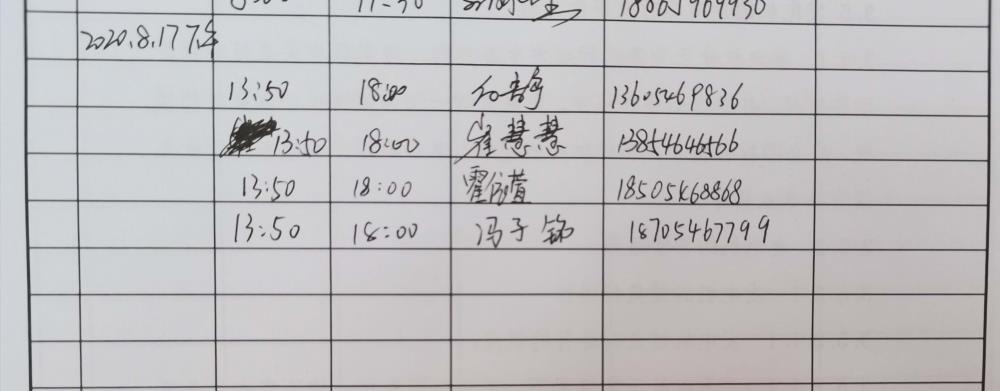 18005909930
2020.8.17 下午
13:50 18:00 石静 13605469836
13:50 18:00 崔慧慧 13854646566
13:50 18:00 霍 18505468868
13:50 18:00 冯子铭 18705467799